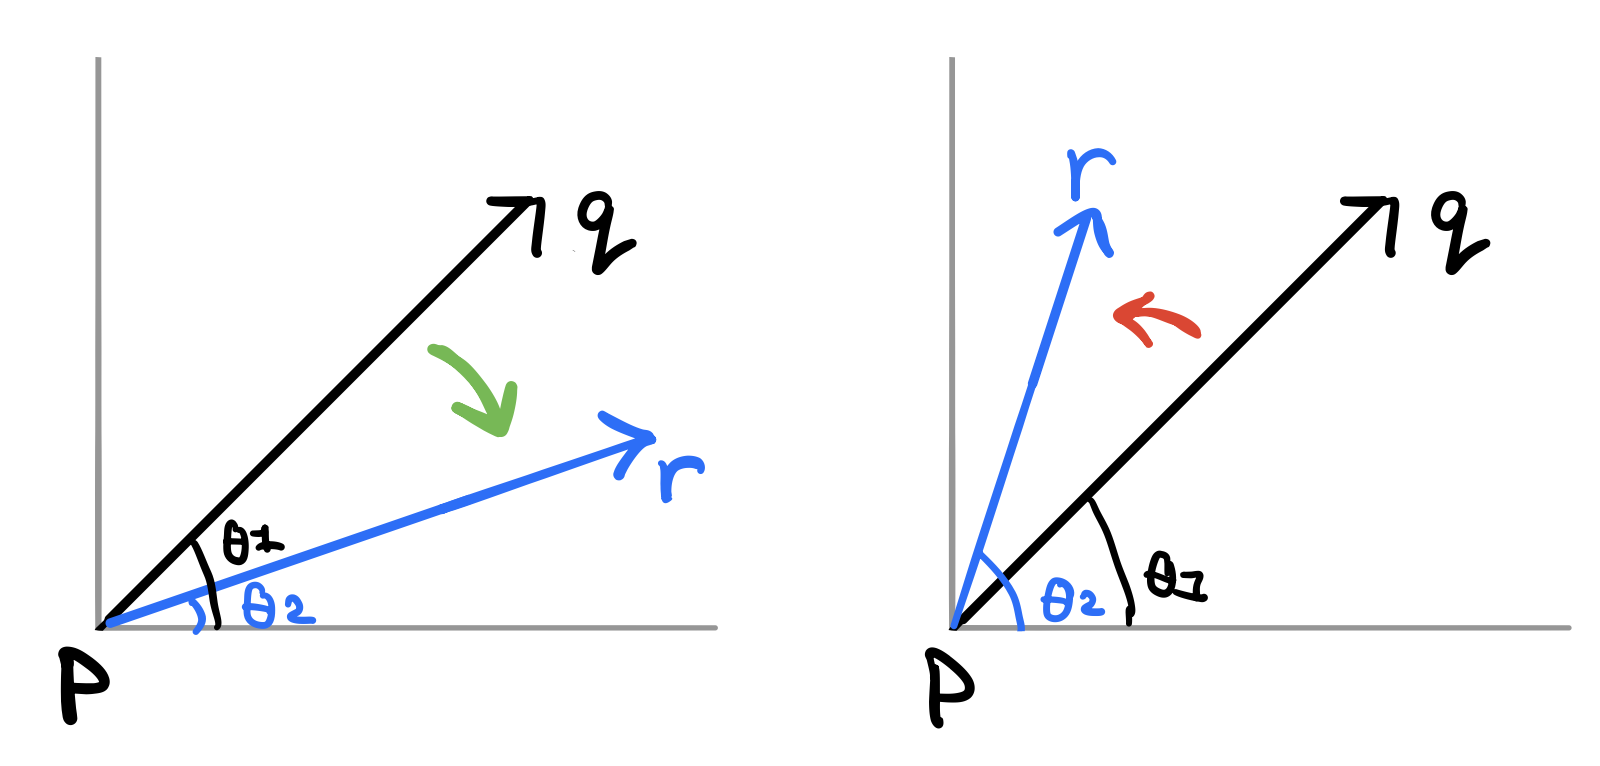 q
r
θ1
θ2
P
r
q
θ2
θ1
P